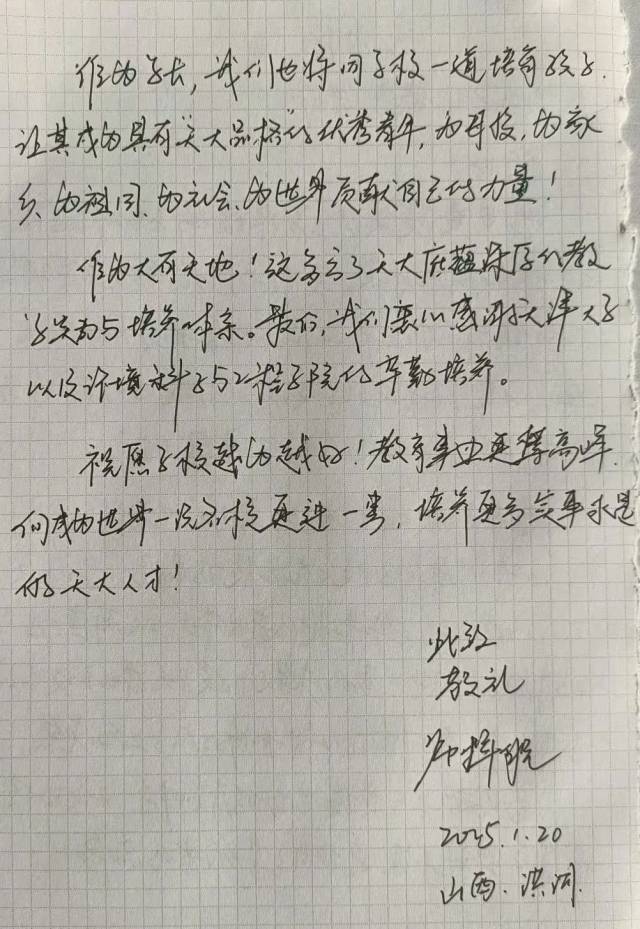 作为家长，我们也将同学校一道培育孩子，
让其成为具有“天大品格”的优秀青年，为母校，为家
乡、为祖国、为社会、为世界贡献自己的力量！
作为大有天地！这多亏了天大底蕴深厚的教
学与培养体系。最后，我们衷心感谢天津大学
以及环境科学与工程学院的辛勤培养。
祝愿学校越办越好！教育事业再攀高峰，
向成为世界一流名校再进一步，培养更多实事求是
的天大人才！
此致
敬礼
2025.1.20
山西·洪洞